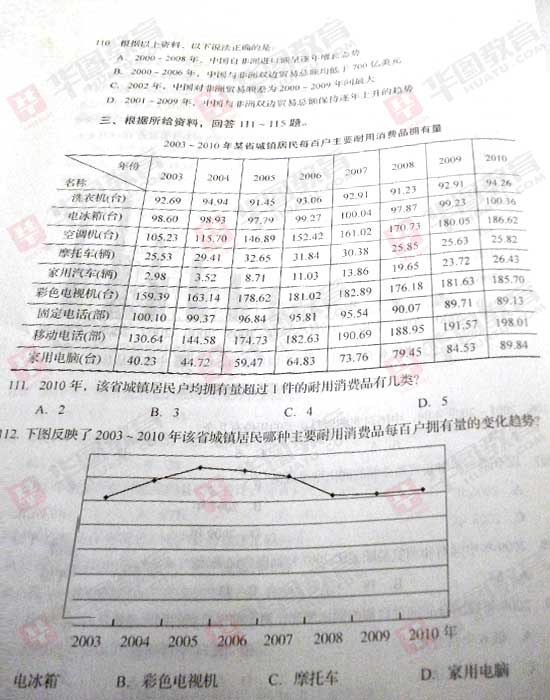 110. 根据以上资料，以下说法正确的是：
A. 2000～2008年，中国自非洲进口额呈逐年增长态势
B. 2000～2006年，中国与非洲双边贸易总额均低于700亿美元
C. 2002年，中国对非洲贸易顺差为2000～2009年间最大
D. 2001～2009年，中国与非洲双边贸易总额保持逐年上升的趋势
三、根据所给资料，回答111～115题。
2003～2010年某省城镇居民每百户主要耐用消费品拥有量
年份 名称 2003 2004 2005 2006 2007 2008 2009 2010
洗衣机(台) 92.69 94.94 91.45 93.06 92.91 91.23 92.91 94.26
电冰箱(台) 98.60 98.93 97.79 99.27 100.04 97.87 99.23 100.36
空调机(台) 105.23 115.70 146.89 152.42 161.02 170.73 180.05 186.62
摩托车(辆) 25.53 29.41 32.65 31.84 30.38 25.85 25.63 25.82
家用汽车(辆) 2.98 3.52 8.71 11.03 13.86 19.65 23.72 26.43
彩色电视机(台) 159.39 163.14 178.62 181.02 182.89 176.18 181.63 185.70
固定电话(部) 100.10 99.37 96.84 95.81 95.54 90.07 89.71 89.13
移动电话(部) 130.64 144.58 174.73 182.63 190.69 188.95 191.57 198.01
家用电脑(台) 40.23 44.72 59.47 64.83 73.76 79.45 84.53 89.84
111. 2010年，该省城镇居民户均拥有量超过1件的耐用消费品有几类？
A. 2 B. 3 C. 4 D. 5
12. 下图反映了2003～2010年该省城镇居民哪种主要耐用消费品每百户拥有量的变化趋势？
2003 2004 2005 2006 2007 2008 2009 2010年
电冰箱 B. 彩色电视机 C. 摩托车 D. 家用电脑
华图教育
HUATU.COM